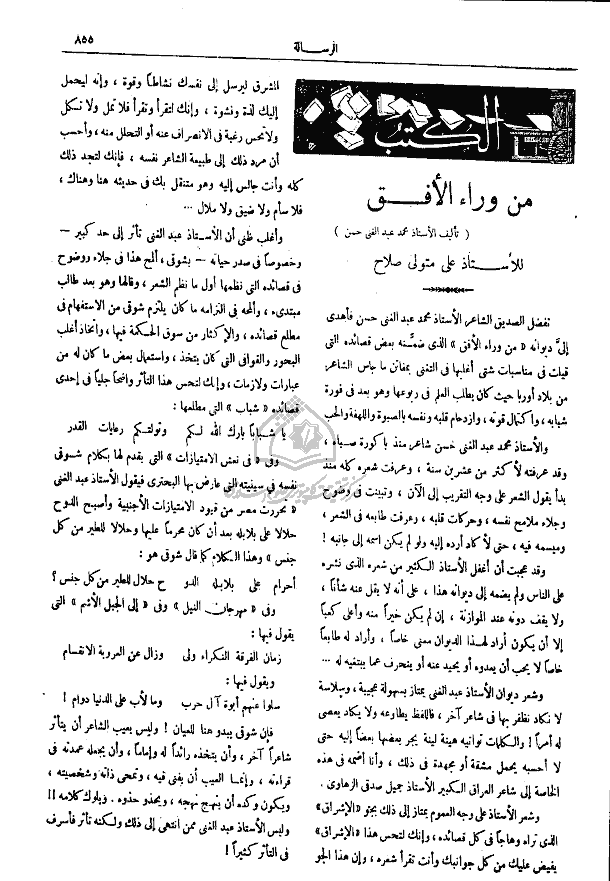 ٨٥٥
الرسالة
الكتب
من وراء الأفق
( تأليف الأستاذ محمد عبد الغنى حسن )
للأستاذ على متولى صلاح
تفضل الصديق الشاعر الأستاذ محمد عبد الغنى حسن فأهدى
إلىّ ديوانه « من وراء الأفق » الذى ضمّنه بعض قصائده التى
قيلت فى مناسبات شتى أغلبها فى التغنى بمفاتن ما جاس الشاعر
من بلاد أوربا حيث كان يطلب العلم فى ربوعها وهو بعد فى فورة
شبابه ، واكتمال قوته ، وازدحام قلبه ونفسه بالصبوة واللهفة والحب
والأستاذ محمد عبد الغنى حسن شاعر منذ باكورة صباه ،
وقد عرفته لأكثر من عشرين سنة ، وعرفت شعره كله منذ
بدأ يقول الشعر على وجه التقريب إلى الآن ، وتبينت فى وضوح
وجلاء ملامح نفسه ، وحركات قلبه ، وعرفت طابعه فى الشعر ،
وميسمه فيه ، حتى لأكاد أرده إليه ولو لم يكن اسمه إلى جانبه !
وقد عجبت أن أغفل الأستاذ الكثير من شعره الذى نشره
على الناس ولم يضمه إلى ديوانه هذا ، على أنه لا يقل عنه شأناً ،
ولا يقف دونه عند الموازنة ، إن لم يكن خيراً منه وأعلى كعباً
إلا أن يكون أراد لهذا الديوان معنى خاصاً ، وأراد له طابعاً
خاصاً لا يجب أن يعدوه أو يحيد عنه أو ينحرف عما يبتغيه له ...
وشعر ديوان الأستاذ عبد الغنى يمتاز بسهولة عجيبة ، وسلاسة
لا نكاد نظفر بها فى شاعر آخر ، فاللفظ يطاوعه ولا يكاد يعصى
له أمراً ! والكلمات توانيه هينة لينة يجر بعضها بعضاً إليه حتى
لا أحسبه يحمل مشقة أو مجهدة فى ذلك ، وأنا أضمه فى هذه
الخاصة إلى شاعر العراق الكبير الأستاذ جميل صدقى الزهاوى .
وشعر الأستاذ على وجه العموم يمتاز إلى ذلك بجو «الإشراق»
الذى تراه وهاجاً فى كل قصائده ، وإنك لتحس هذا «الإشراق»
يفيض عليك من كل جوانبك وأنت تقرأ شعره ، وإن هذا الجو
المشرق ليرسل إلى نفسك نشاطاً وقوة ، وإنه ليحمل
إليك لذة ونشوة ، وإنك لتقرأ وتقرأ فلا تمل ولا تسكل
ولا تحس رغبة فى الانصراف عنه أو التحلل منه ، وأحسب
أن مرد ذلك إلى طبيعة الشاعر نفسه ، فإنك لتجد ذلك
كله وأنت جالس إليه وهو متنقل بك فى حديثه هنا وهناك ،
فلا سأم ولا ضيق ولا ملال ...
وأغلب ظنى أن الأستاذ عبد الغنى تأثر إلى حد كبير —
وخصوصاً فى صدر حياته — بشوقى ، ألمح هذا فى جلاء ووضوح
فى قصائده التى نظمها أول ما نظم الشعر ، وقالها وهو بعد طالب
مبتدىء ، وألمحه فى التزامه ما كان يلتزم شوقى من الاستفهام فى
مطلع قصائده ، والإكثار من سوق الحكمة فيها ، واتخاذ أغلب
البحور والقوافى التى كان يتخذ ، واستعمال بعض ما كان له من
عبارات ولازمات ، وإنك لتحس هذا التأثر واضحاً جلياً فى إحدى
قصائده « شباب » التى مطلعها :
يا شباباً بارك الله لكم وتولتكم رعايات القدر
وفى « فى نعش الامتيازات » التى يقدم لها بكلام شوقى
نفسه فى سينيته التى عارض بها البحترى فيقول الأستاذ عبد الغنى
« تحررت مصر من قيود الامتيازات الأجنبية وأصبح الدوح
حلالا على بلابله بعد أن كان محرماً عليها وحلالا للطير من كل
جنس » وهذا الكلام كما قال شوقى هو :
أحرام على بلابله الدو ح حلال للطير من كل جنس ؟
وفى « مهرجان النيل » وفى « إلى الجيل الأشم » التى
يقول فيها :
زمان الفرقة النكراء ولى وزال عن العروبة الانقسام
ويقول فيها :
سلوا عنهم أبوة آل حرب وما لأب على الدنيا دوام !
فإن شوقى يبدو هنا للعيان ! وليس يعيب الشاعر أن يتأثر
شاعراً آخر ، وأن يتخذه رائداً له وإماماً ، وأن يجعله عمدته فى
قراءاته ، وإنما العيب أن يفنى فيه ، وتمحى ذاته وشخصيته ،
ويكون وكده أن ينهج نهجه ، ويحذو حذوه . ويلوك كلامه !!
وليس الأستاذ عبد الغنى ممن انتهى إلى ذلك ولكنه تأثر فأسرف
فى التأثر كثيراً !